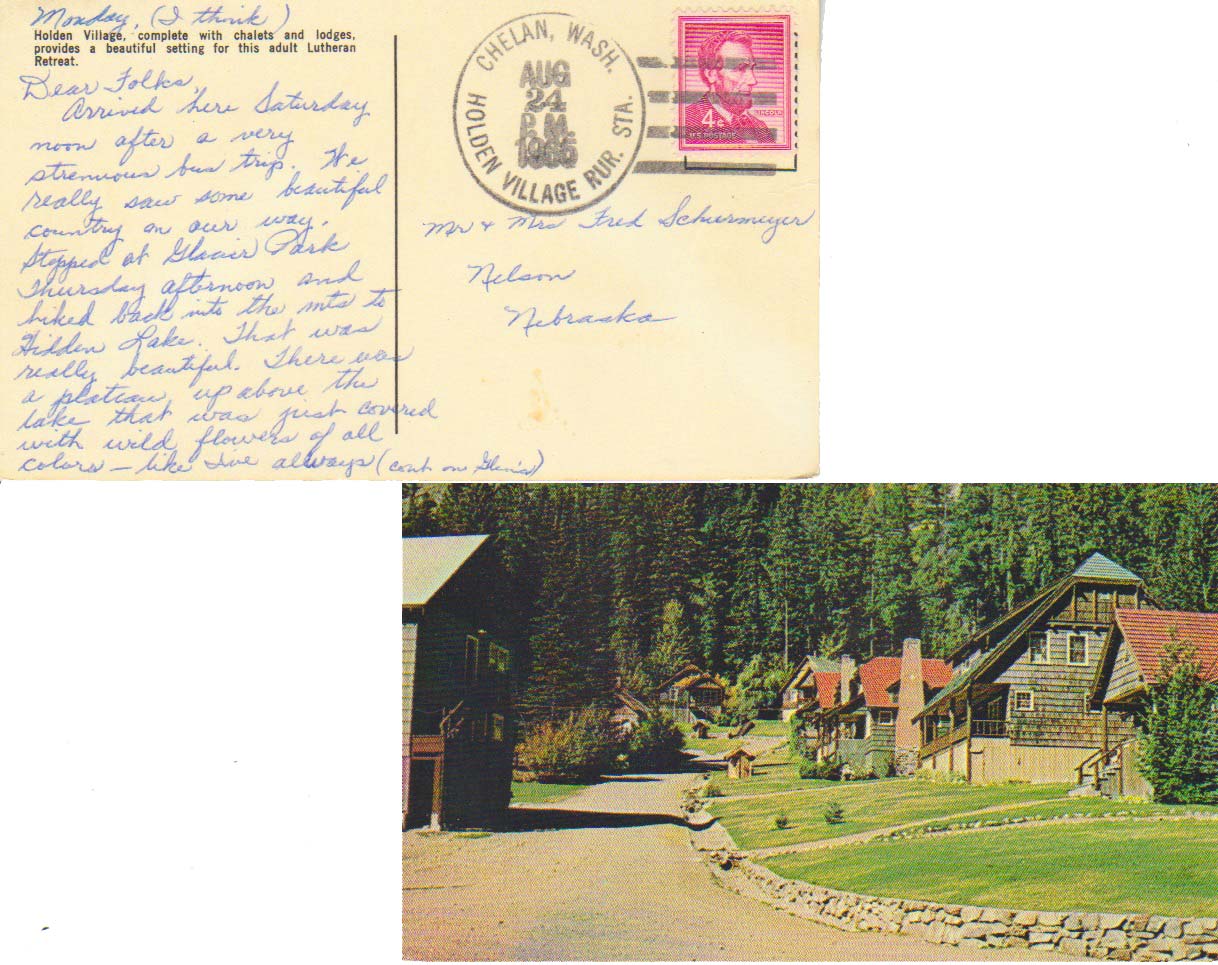 Monday, (I think)
Holden Village, complete with chalets and lodges,
provides a beautiful setting for this adult Lutheran
Retreat.
Dear Folks,
Arrived here Saturday
noon after a very
strenuous bus trip. We
really saw some beautiful
country on our way.
Stopped at Glacier Park
Thursday afternoon and
hiked back into the mts to
Hidden Lake. That was
really beautiful. There was
a plateau up above the
lake that was just covered
with wild flowers of all
colors — like I've always (cont on Glen's)
CHELAN, WASH.
AUG
24
P.M.
HOLDEN VILLAGE RUR. STA.
LINCOLN
4¢
U.S. POSTAGE
Mr & Mrs Fred Schurmeyer
Nelson
Nebraska